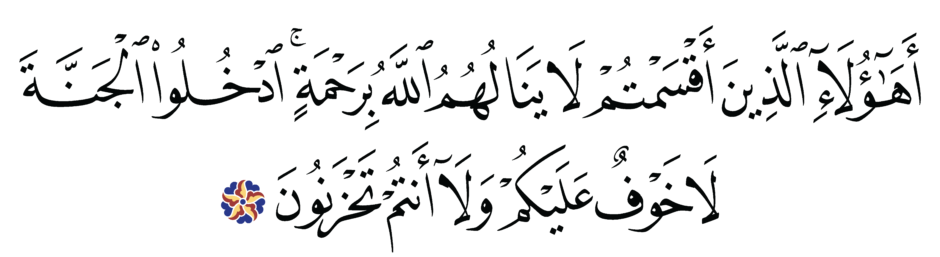 أَهَٰٓؤُلَآءِ ٱلَّذِينَ أَقْسَمْتُمْ لَا يَنَالُهُمُ ٱللَّهُ بِرَحْمَةٍۚ ٱدْخُلُوا۟ ٱلْجَنَّةَ
لَا خَوْفٌ عَلَيْكُمْ وَلَآ أَنتُمْ تَحْزَنُونَ